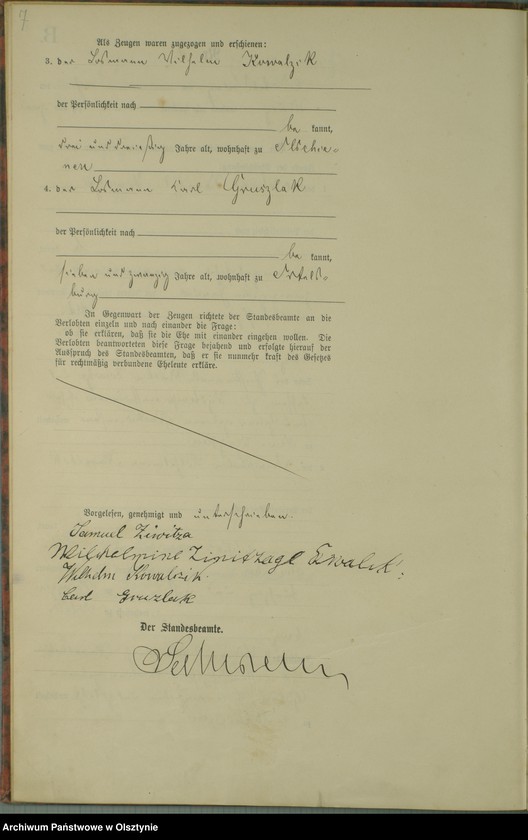 Als Zeugen waren zugezogen und erschienen:
3. der Losmann Wilhelm Kowalzik
der Persönlichkeit nach
be kannt,
drei und dreißig Jahre alt, wohnhaft zu
nen
4. der Losmann Carl Gruszlak
der Persönlichkeit nach
be kannt,
sieben und zwanzig Jahre alt, wohnhaft zu Ortels-
burg
In Gegenwart der Zeugen richtete der Standesbeamte an die
Verlobten einzeln und nach einander die Frage:
ob sie erklären, daß sie die Ehe mit einander eingehen wollen. Die
Verlobten beantworteten diese Frage bejahend und erfolgte hierauf der
Ausspruch des Standesbeamten, daß er sie nunmehr kraft des Gesetzes
für rechtmäßig verbundene Eheleute erkläre.
Vorgelesen, genehmigt und unterschrieben.
Samuel Ziwitza
Wilhelmine
Wilhelm Kowalzik.
Carl Gruzlak
Der Standesbeamte.
Archiwum Państwowe w Olsztynie